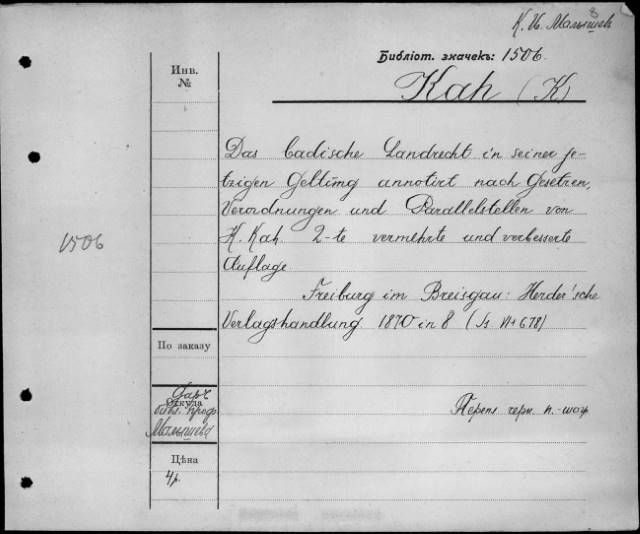 К. И. Малышев
Библіот. значекъ: 1506.
Инв.
№
Kah (K)
Das badische Landrecht in seiner je-
tzigen Geltung annotirt nach Gesetzen,
Verordnungen und Parallelstellen von
K. Kah. 2-te vermehrte und verbesserte
Auflage
1506
Freiburg im Breisgau: Herder'sche
Verlagshandlung 1870 in 8 (
678)
По заказу
Даръ
Откуда
библ. проф
Малышева
Перепл. черн. п.-шагр
Цѣна
4р.